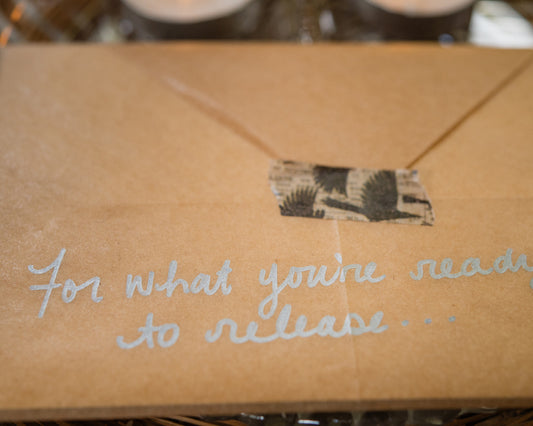 For what you're ready
to release...